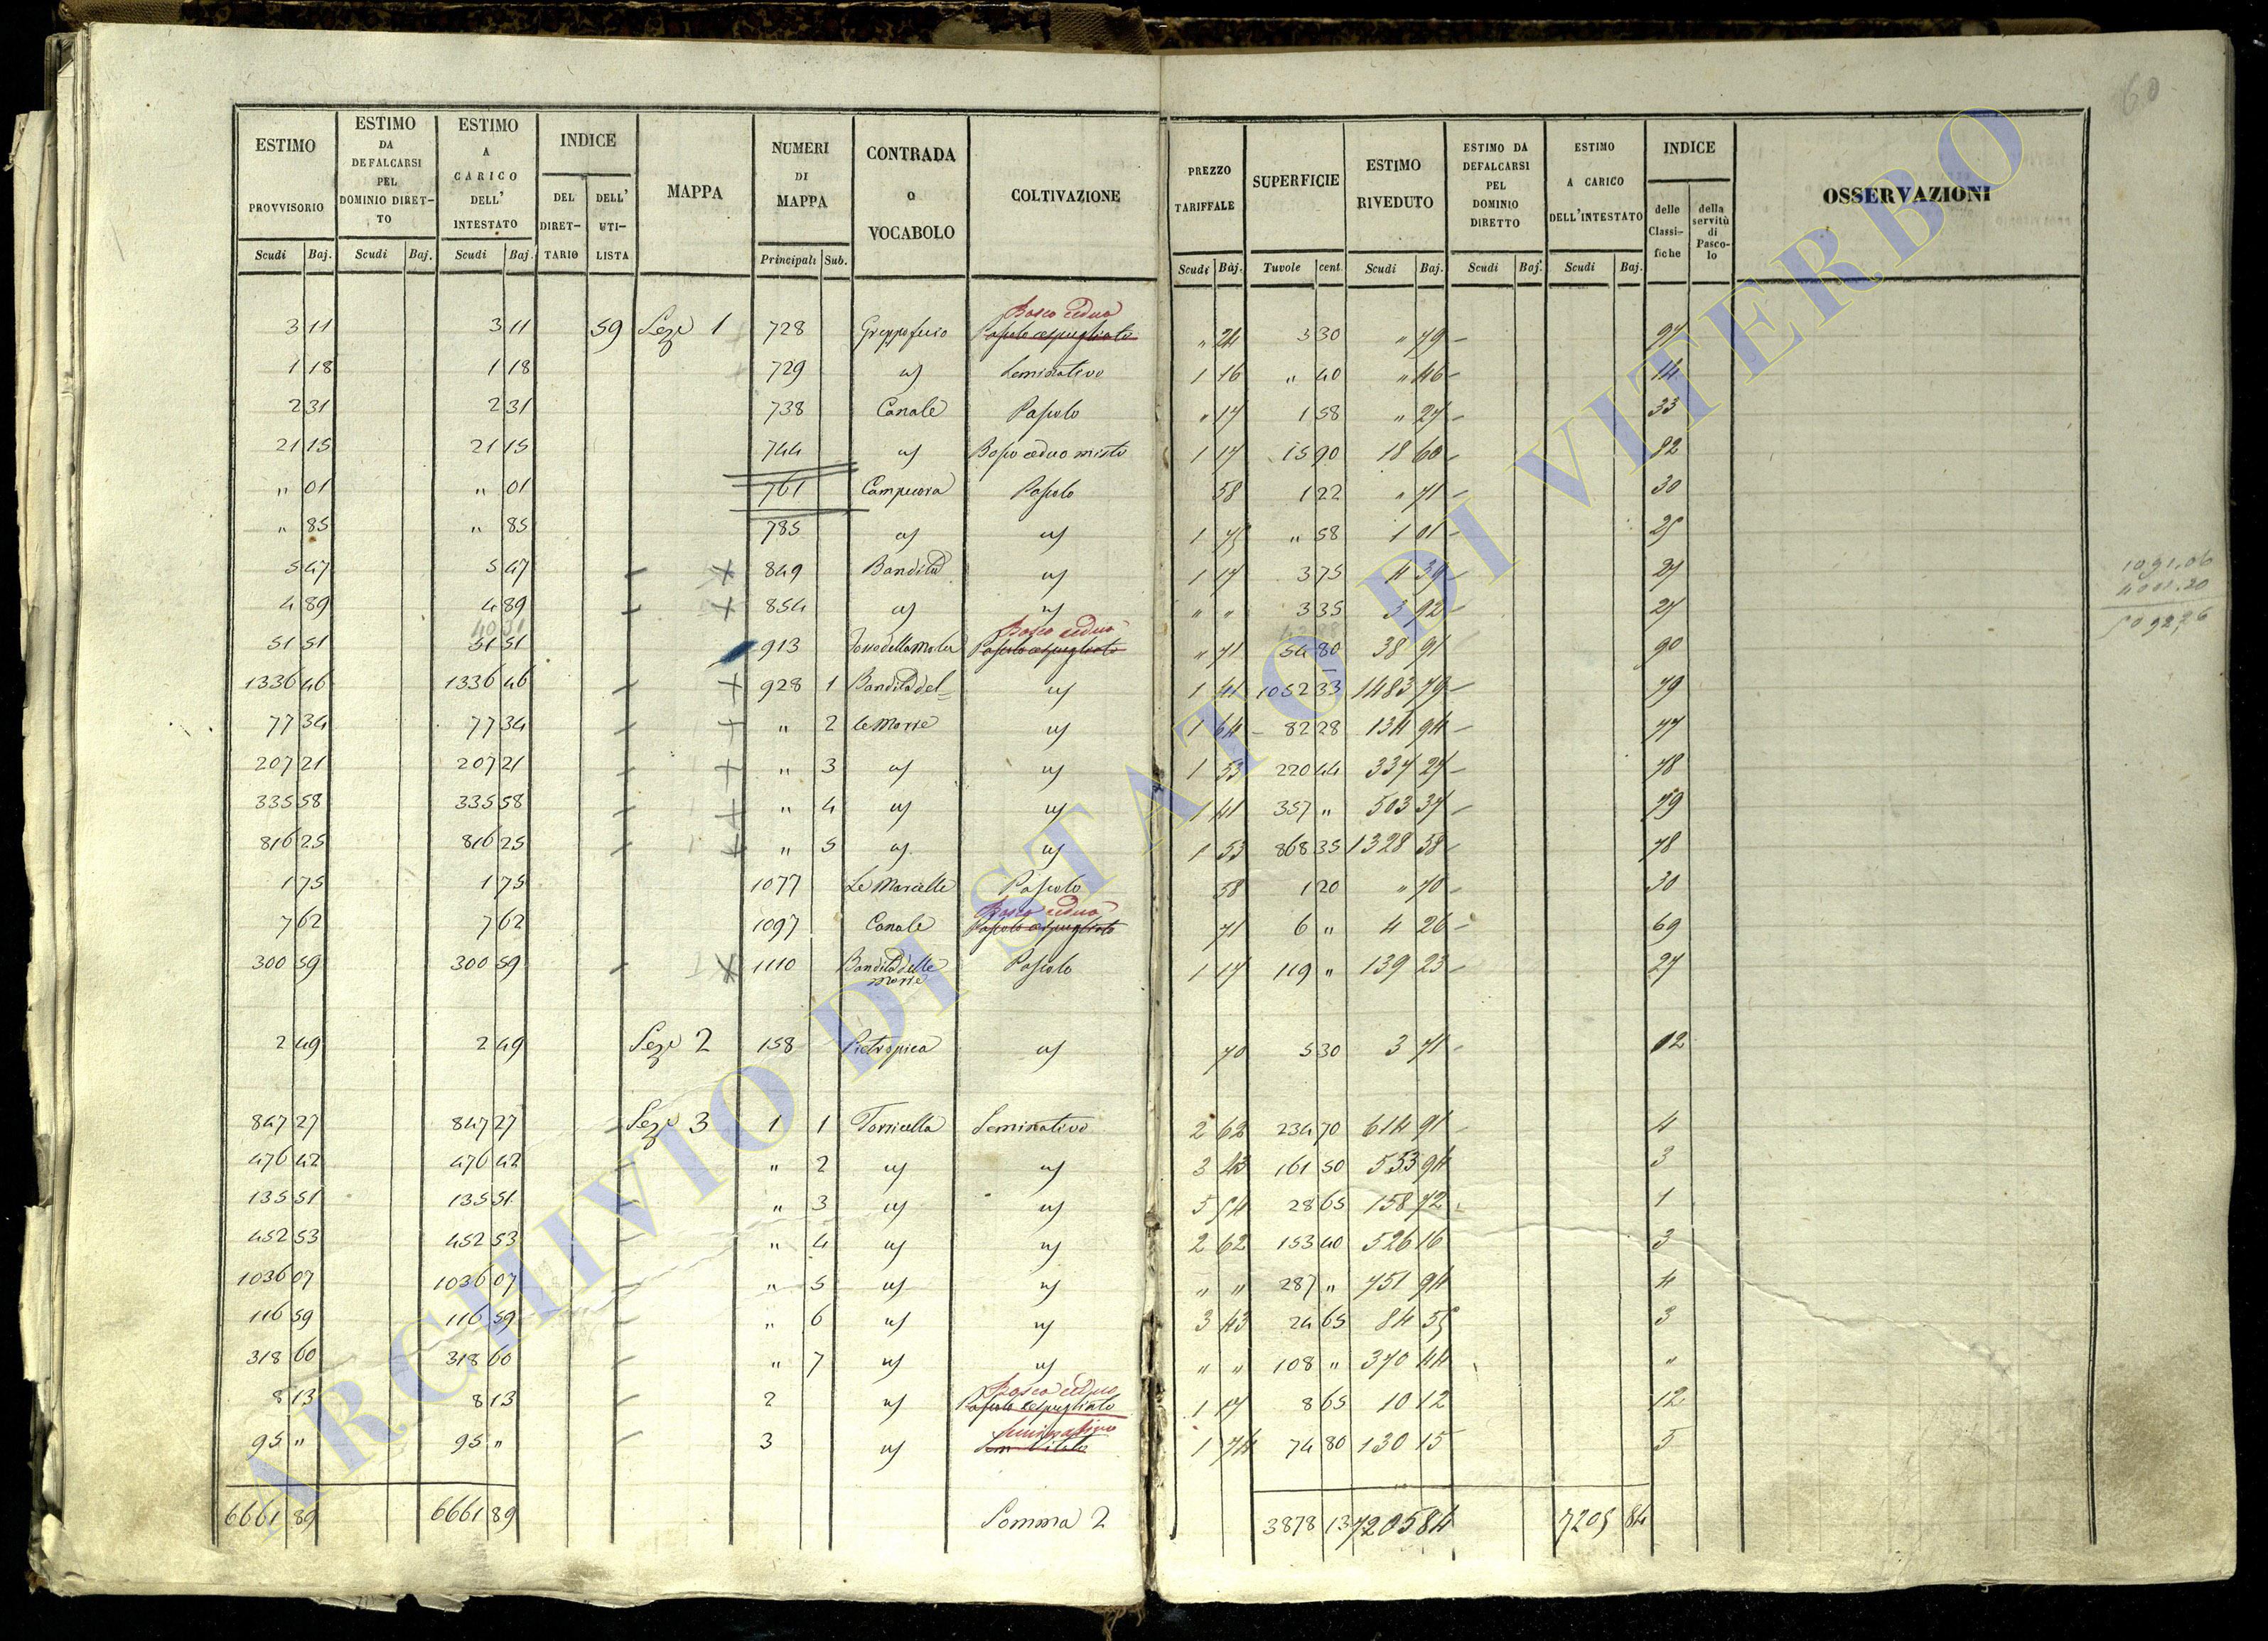 60
ESTIMO PROVVISORIO | ESTIMO DA DEFALCARSI PEL DOMINIO DIRETTO | ESTIMO A CARICO DELL' INTESTATO | INDICE DEL DIRETTARIO | DELL' UTILISTA | MAPPA | NUMERI DI MAPPA | CONTRADA o VOCABOLO | COLTIVAZIONE | PREZZO TARIFFALE | SUPERFICIE | ESTIMO RIVEDUTO | ESTIMO DA DEFALCARSI PEL DOMINIO DIRETTO | ESTIMO A CARICO DELL'INTESTATO | INDICE delle Classifiche | della servitù di Pascolo | OSSERVAZIONI
Scudi | Baj. | Scudi | Baj. | Scudi | Baj. | Principali | Sub. | Scudi | Baj. | Tavole | cent. | Scudi | Baj. | Scudi | Baj. | Scudi | Baj.
Bosco ceduo
3 11 | 3 11 | 59 | Seze 1 | 728 | Greppofuio | Pascolo cespugliato | " 24 | 3 30 | " 79 | 97
1 18 | 1 18 | 729 | uj | Seminativo | 1 16 | " 40 | " 46 | 14
2 31 | 2 31 | 738 | Canale | Pascolo | " 17 | 1 58 | " 27 | 33
21 15 | 21 15 | 744 | uj | Bosco ceduo misto | 1 17 | 15 90 | 18 60 | 82
" 01 | " 01 | 761 | Campicora | Pascolo | 58 | 1 22 | " 71 | 30
" 85 | " 85 | 785 | uj | uj | 1 75 | " 58 | 1 01 | 25
5 47 | 5 47 | 849 | Bandita | uj | 1 17 | 3 75 | 4 39 | 27
4 89 | 4 89 | 854 | uj | uj | " " | 3 35 | 3 92 | 27
1091.06
4001.20
5092,26
Bosco ceduo
51 51 | 51 51 | 913 | Fosso della Mola | Pascolo cespugliato | " 71 | 54 80 | 38 91 | 90
1336 46 | 1336 46 | 928 | 1 | Bandita del= | uj | 1 41 | 1052 33 | 1483 79 | 79
77 34 | 77 34 | " | 2 | le Morre | uj | 1 64 | 82 28 | 134 94 | 77
207 21 | 207 21 | " | 3 | uj | uj | 1 53 | 220 44 | 337 27 | 78
335 58 | 335 58 | " | 4 | uj | uj | 1 41 | 357 " | 503 37 | 79
816 25 | 816 25 | " | 5 | uj | uj | 1 53 | 868 35 | 1328 58 | 78
1 75 | 1 75 | 1077 | Le Marcelle | Pascolo | 58 | 1 20 | " 70 | 30
Bosco ceduo
7 62 | 7 62 | 1097 | Canale | Pascolo cespugliato | 71 | 6 " | 4 26 | 69
300 59 | 300 59 | 1110 | Bandita delle Morre | Pascolo | 1 17 | 119 " | 139 23 | 27
2 49 | 2 49 | Seze 2 | 158 | Pietropica | uj | 70 | 5 30 | 3 71 | 12
847 27 | 847 27 | Seze 3 | 1 | 1 | Torricella | Seminativo | 2 62 | 234 70 | 614 91 | 4
476 42 | 476 42 | " | 2 | uj | uj | 3 43 | 161 50 | 553 94 | 3
135 51 | 135 51 | " | 3 | uj | uj | 5 54 | 28 65 | 158 72 | 1
452 53 | 452 53 | " | 4 | uj | uj | 2 62 | 153 40 | 526 16 | 3
1036 07 | 1036 07 | " | 5 | uj | uj | " " | 287 " | 751 94 | 4
116 59 | 116 59 | " | 6 | uj | uj | 3 43 | 24 65 | 84 55 | 3
318 60 | 318 60 | " | 7 | uj | uj | " " | 108 " | 370 44 | "
Bosco ceduo
8 13 | 8 13 | 2 | uj | Pascolo cespugliato | 1 17 | 8 65 | 10 12 | 12
Seminativo
95 " | 95 " | 3 | uj | Sem Vitato | 1 74 | 74 80 | 130 15 | 5
6661 89 | 6661 89 | Somma 2 | 3878 13 | 7205 84 | 7205 84
ARCHIVIO DI STATO DI VITERBO